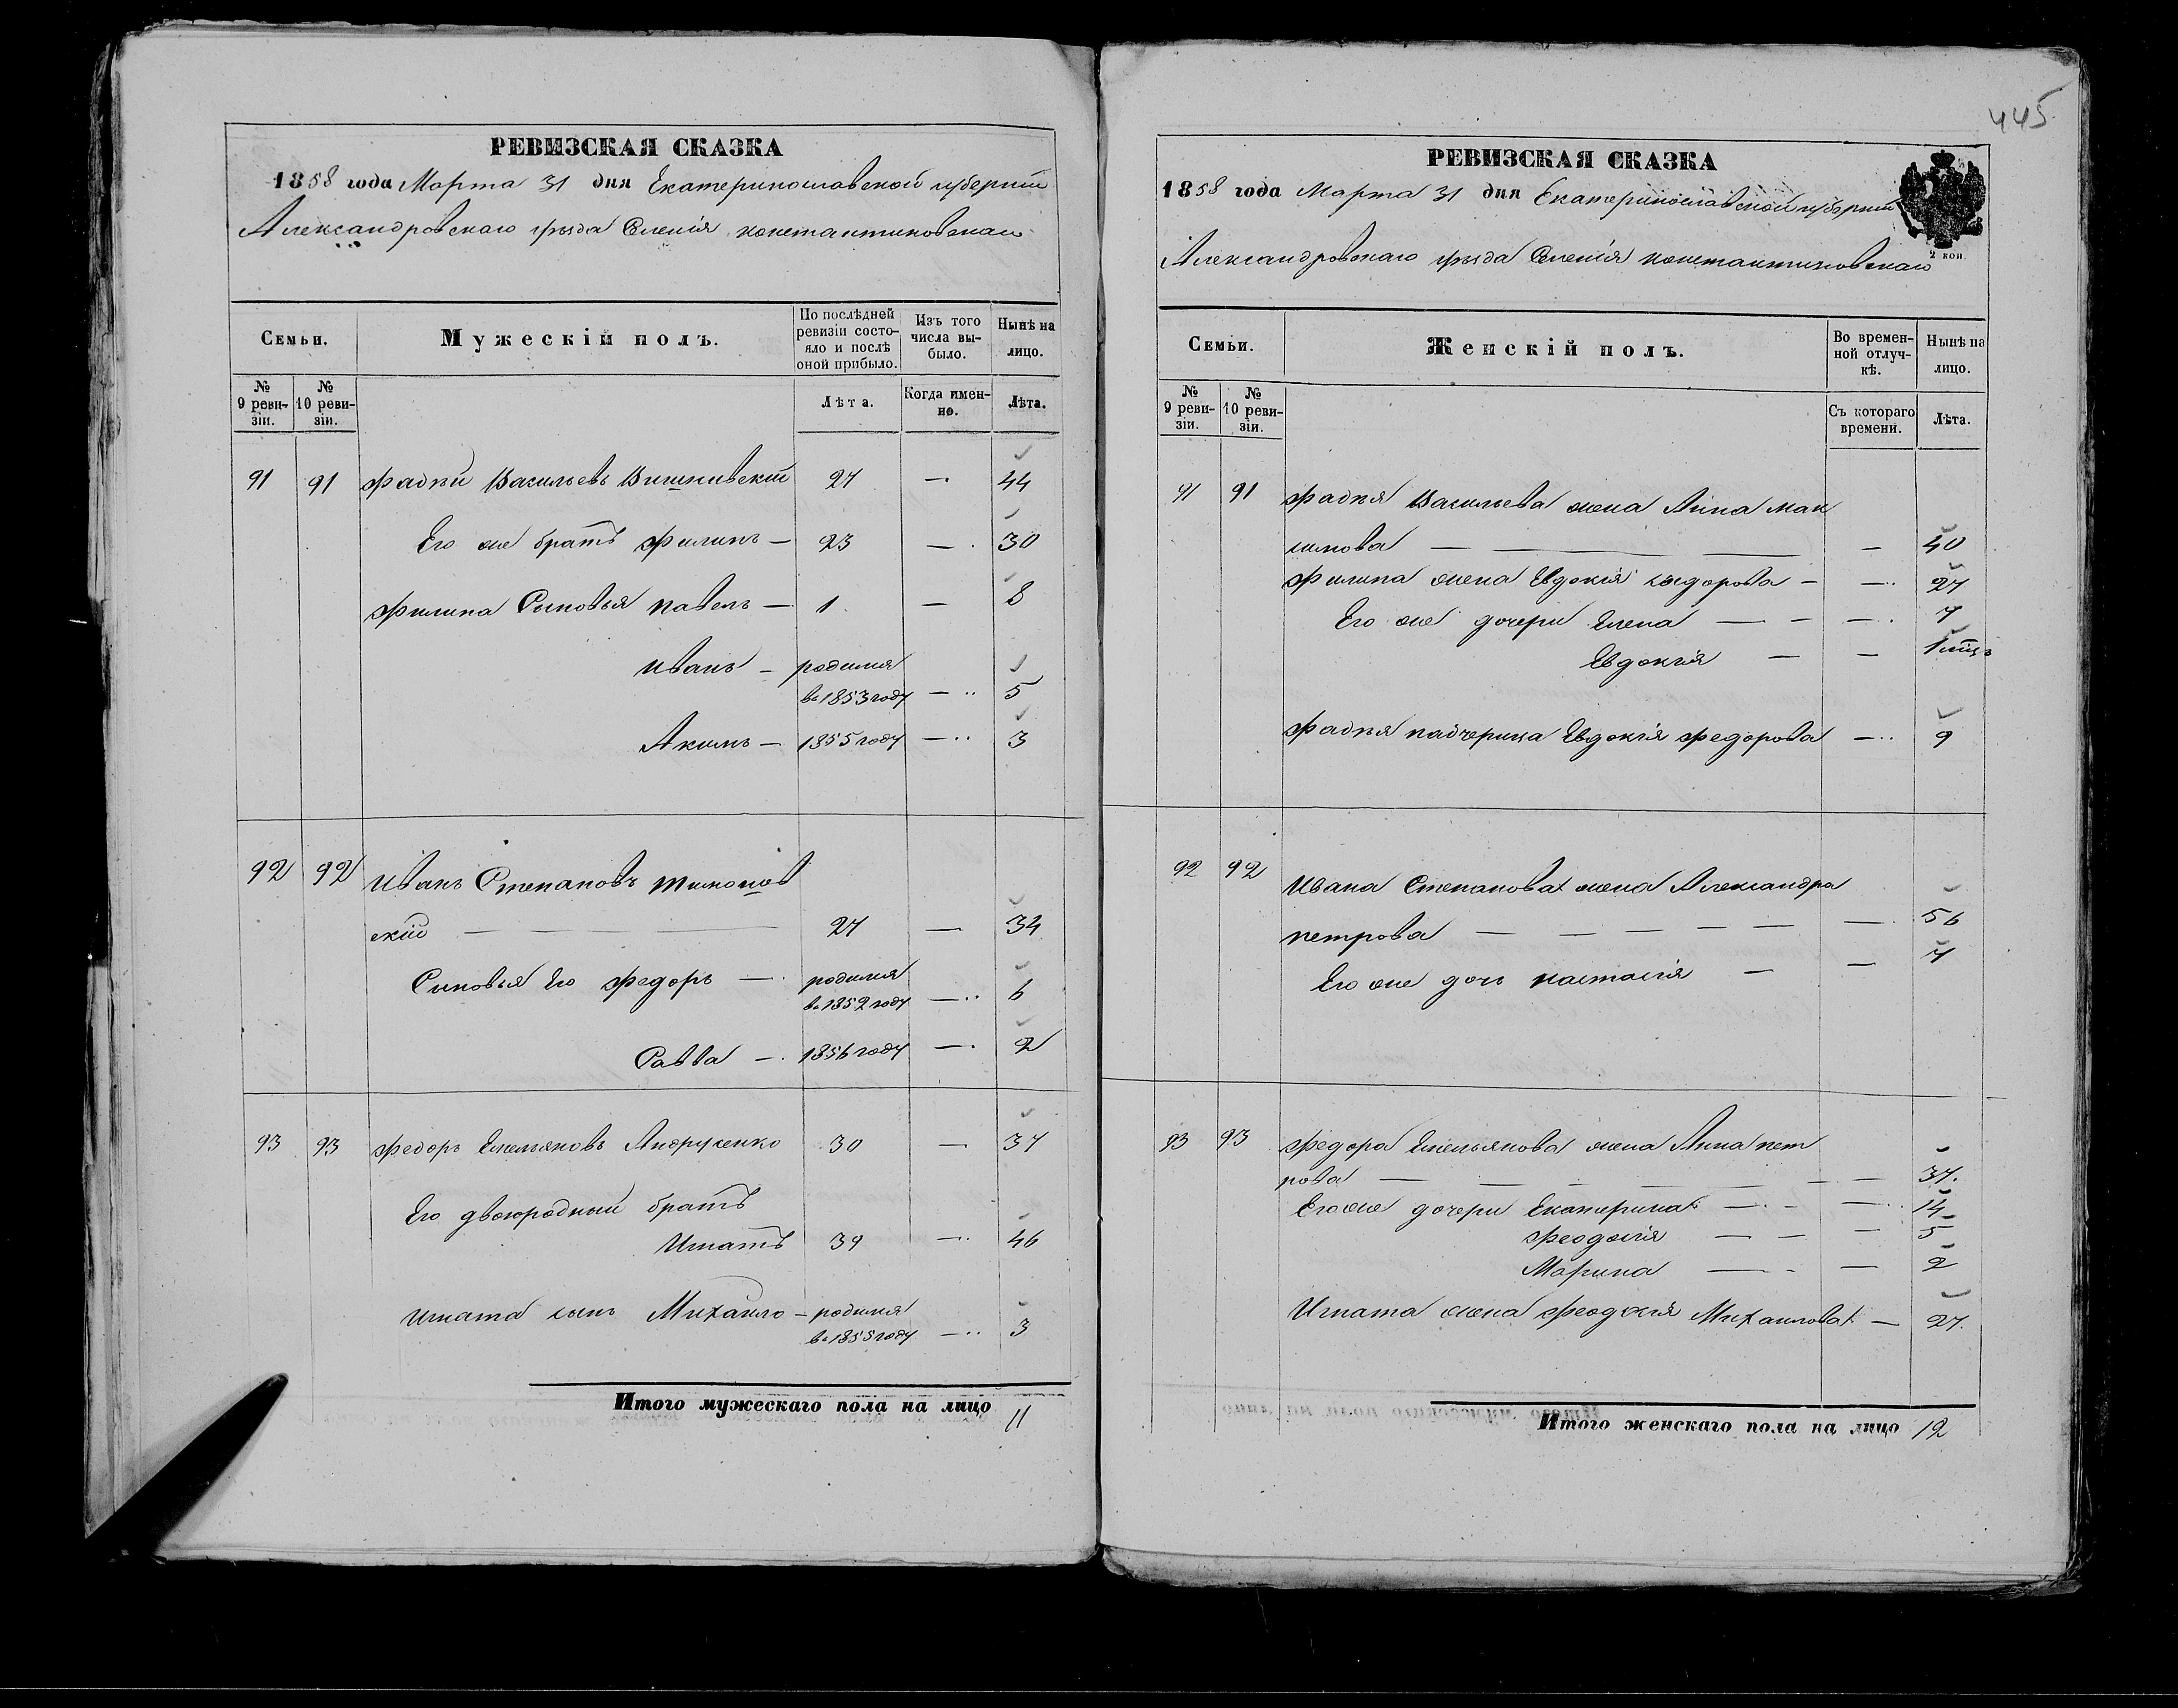 РЕВИЗСКАЯ СКАЗКА
1858 года Марта 31 дня Екатеринославской губернии
Александровскаго уѣзда Селенія Константиновскаго
Семьи.
Мужескій полъ.
По послѣдней ревизіи состояло и послѣ оной прибыло.
Изъ того числа выбыло.
Нынѣ на лицо.
№ 9 ревизіи.
№ 10 ревизіи.
Лѣта.
Когда именно.
Лѣта.
91 91 Фадѣй Васильевъ Вишнивскій — 44
Его же братъ Филипъ — 23 — 30
Филипа Сыновья Павелъ — 1 — 8
Иванъ — родился
въ 1853 году — 5
Акимъ — 1855 году — 3
92 92 Иванъ Степановъ
скій — 27 — 34
Сыновья Его Федоръ — родился
въ 1852 году — 6
Савва — 1856 году — 2
93 93 Федоръ Емельяновъ Андрусенко 30 — 37
Его двоюродный братъ
Игнатъ 39 — 46
Игната сынъ Михайло — родился
въ 1855 году — 3
Итого мужескаго пола на лицо 11
445
РЕВИЗСКАЯ СКАЗКА
1858 года Марта 31 дня Екатеринославской губернии
Александровскаго уѣзда Селенія Константиновскаго
2 коп.
Семьи.
Женскій полъ.
Во временной отлучкѣ.
Нынѣ на лицо.
№ 9 ревизіи.
№ 10 ревизіи.
Съ котораго времени.
Лѣта.
91 91 Фадѣя Васильева жена Анна Мак
симова — 40
Филипа жена Евдокія Сидорова — 27
Его же дочери Елена — 7
Евдокія — 1 мѣсъ
Фадѣя падчерица Евдокія Федорова — 9
92 92 Ивана Степанова жена Александра
Петрова — 56
Его же дочь Настасія — 7
93 93 Федора Емельянова жена Анна Пет
рова — 37.
Его же дочери Екатерина — 14
Феодосія — 5
Марина — 2
Игната жена Феодосія Михаилова — 27.
Итого женскаго пола на лицо 12